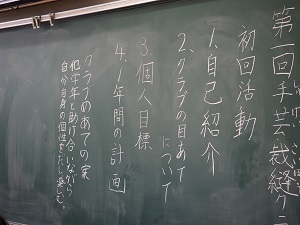 第一回手芸裁縫ク
初回活動
1.自己紹介
2.クラブの目あて
について
3.個人目標
4.1年間の計画
クラブめあての実
他学年と助け合いながら
自分自身の個性をだし楽しむ。